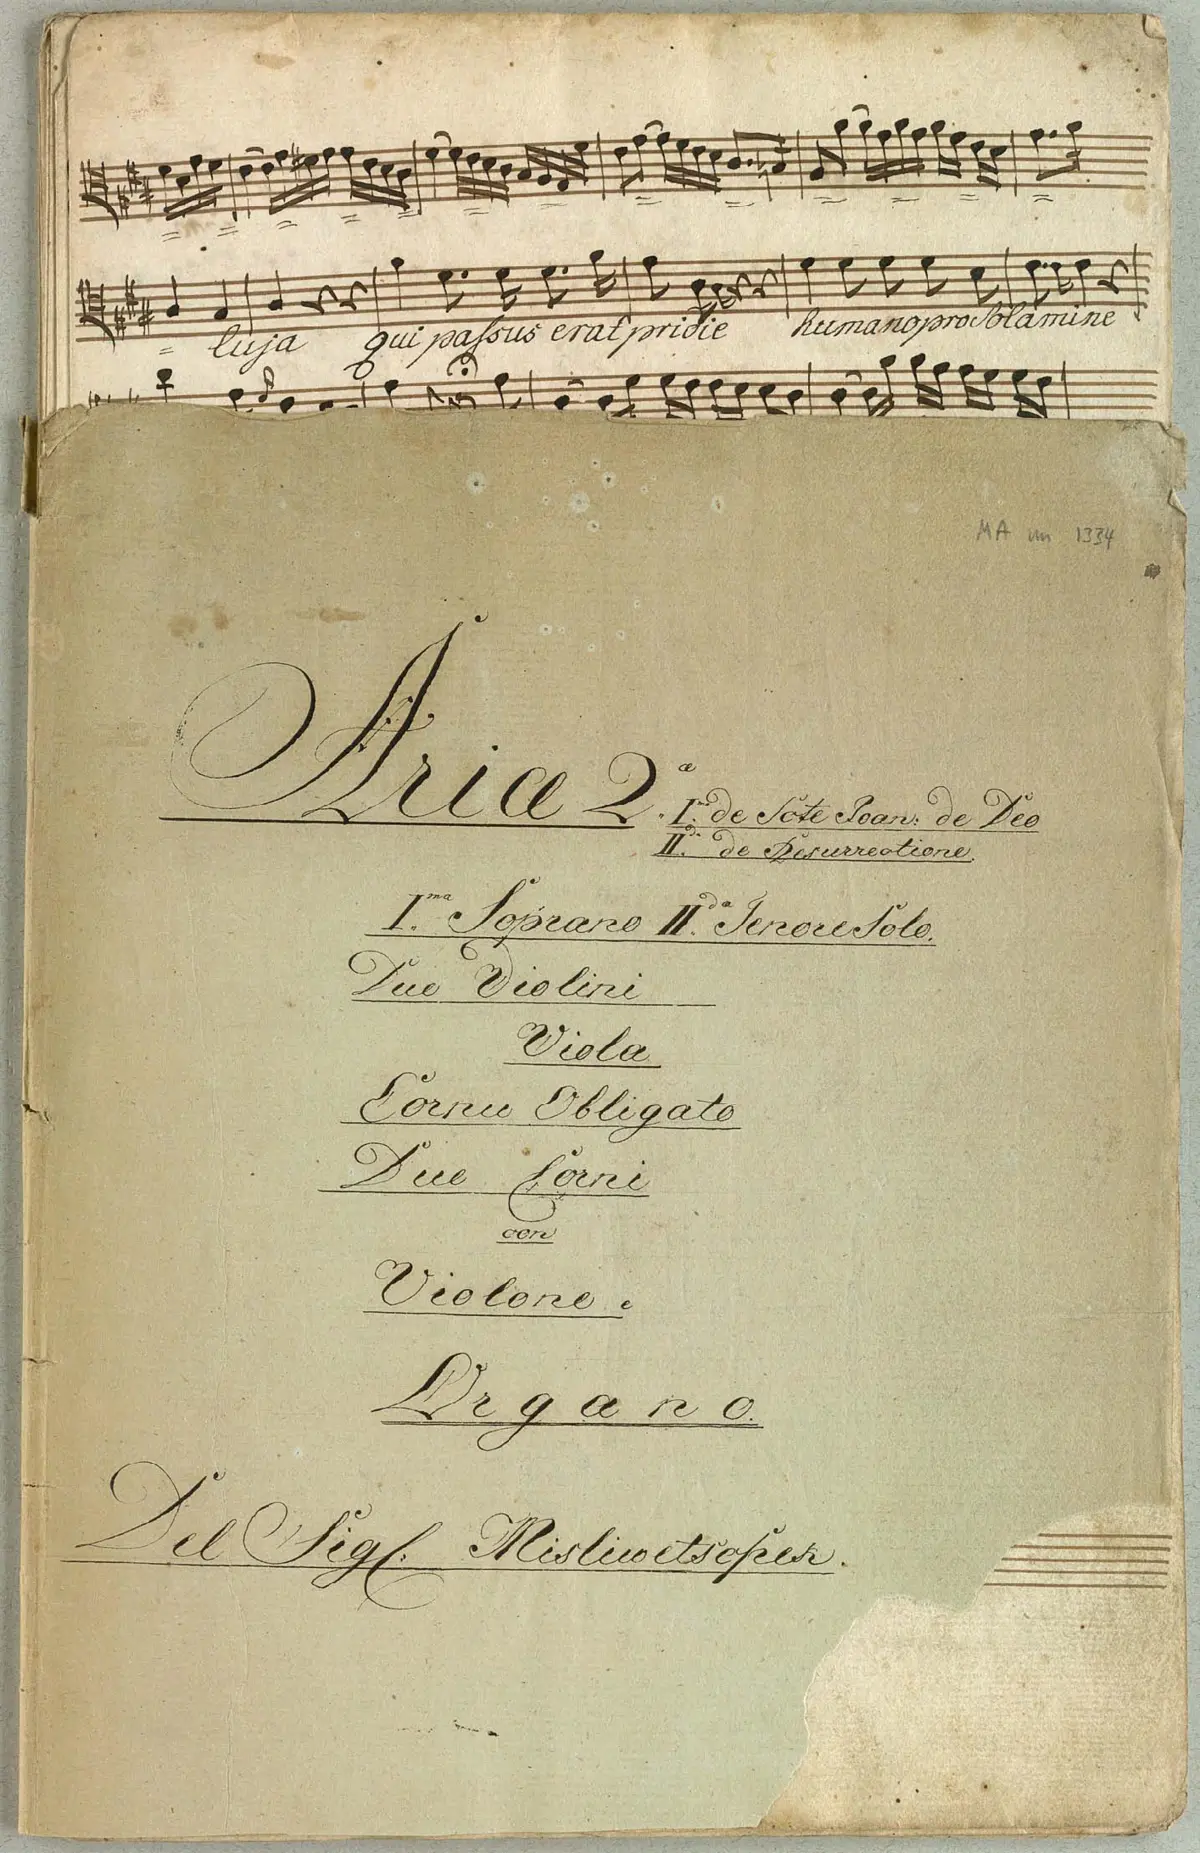 luja qui passus erat pridie humano pro solamine
MA un 1334
Aria 2.æ
I.ma de Scte Joan: de Deo
II.da de Resurrectione.
I.ma Soprano II.da Tenore Solo.
Due Violini
Viola
Cornu Obligato
Due Corni
con
Violone e
Organo.
Del Sigl. Misliwetschek.